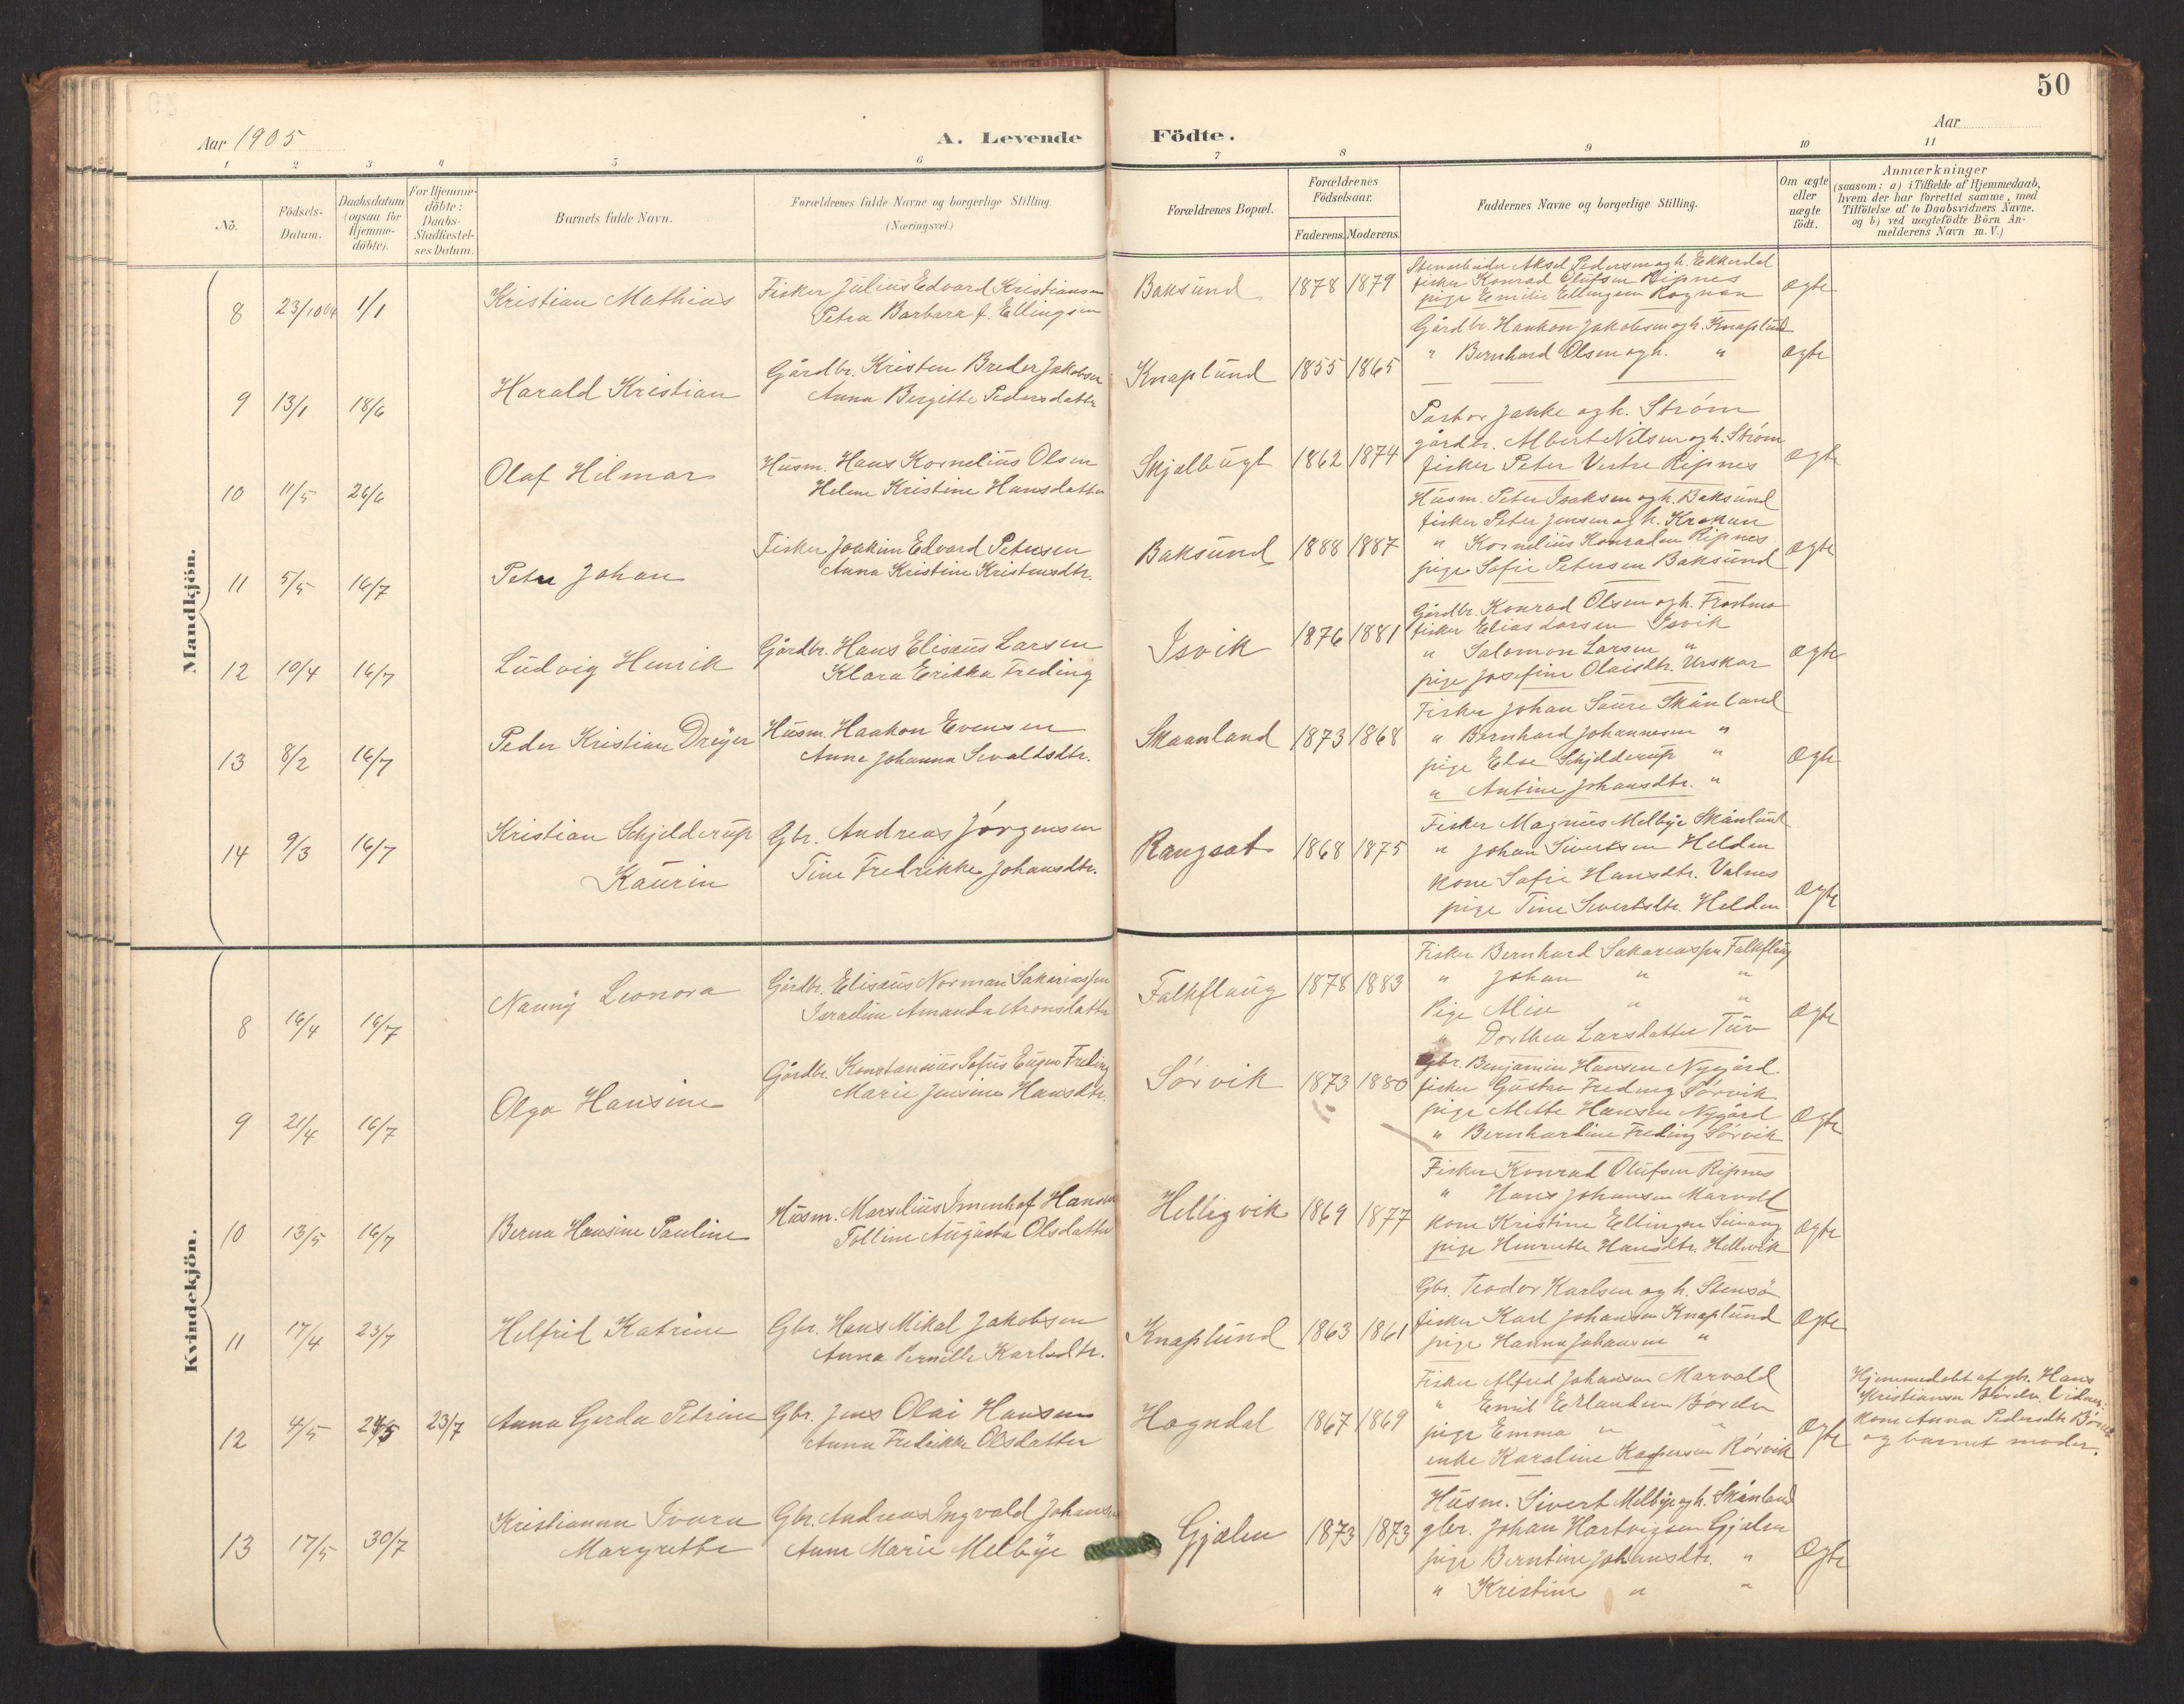 50
Aar 1905
A. Levende Födte.
Aar
1 2 3 4 5 6 7 8 9 10 11
No.
Födsels-Datum.
Daabsdatum (ogsaa for Hjemme-döbte).
For Hjemme-döbte: Daabs-Stadfæstel-ses Datum.
Barnets fulde Navn.
Forældrenes fulde Navne og borgerlige Stilling. (Næringsvei.)
Forældrenes Bopæl.
Forældrenes Födselsaar.
Faderens. Moderens.
Faddernes Navne og borgerlige Stilling.
Om ægte eller uægte födt.
Anmærkninger
(saasom: a) i Tilfælde af Hjemmedaab,
hvem der har forrettet samme, med
Tilföielse af to Daabsvidners Navne.
og b) ved uægtefödte Börn An-
melderens Navn m. V.)
Mandkjön.
8 23/10 04 1/1 Kristian Mathias
Fisker Julius Edvard Kristiansen
Petra Barbara f. Ellingsen
Baksund 1878 1879
Stenarbeider Aksel Pedersen og h. Ekkerdal
fisker Konrad Olufsen Ripnes
pige Emilie Ellingsen Rognan
Ægte
9 13/1 18/6 Harald Kristian
Gårdbr. Kristen Breder Jakobsen
Anna Bergitte Pedersdatter
Knaplund 1855 1865
Gårdbr. Haakon Jakobsen og h. Knaplund
" Bernhard Olsen og h. "
Ægte
10 11/5 26/6 Olaf Hilmar
Husm. Hans Kornelius Olsen
Helene Kristine Hansdatter
Skjelbugt 1862 1874
Pastor Janke og h. Strøm
gårdbr. Albert Nilsen og h. Strøm
fisker Peter Vestre Ripnes
Ægte
11 5/5 16/7 Peter Johan
Fisker Joakim Edvard Petersen
Anna Kristine Kristensdtr.
Baksund 1888 1887
Husm. Peter Isaksen og h. Baksund
fisker Peter Jensen og h. Krokan
" Kornelius Konradsen Ripnes
pige Sofie Petersen Baksund
Ægte
12 10/4 16/7 Ludvig Henrik
Gårdbr. Hans Elisæus Larsen
Klara Erikka Freding
Isvik 1876 1881
Gårdbr. Konrad Olsen og h. Frostmo
fisker Elias Larsen Isvik
" Salomon Larsen "
pige Josefine Olaisdtr. Urskar
Ægte
13 8/2 16/7 Peder Kristian Dreyer
Husm. Haakon Evensen
Anne Johanna Sevaldsdtr.
Skaanland 1873 1868
Fisker Johan Saure Skånland
" Bernhard Johannesen "
pige Else Schjelderup "
" Antine Johansdtr. "
Ægte
14 9/3 16/7 Kristian Schjelderup
Kaurin
Gbr. Andreas Jørgensen
Tine Fredrikke Johansdtr.
Rangsat 1868 1875
Fisker Magnus Melbye Skånland
" Johan Sivertsen Helden
Kone Sofie Hansdtr. Valnes
pige Tine Sivertsdtr. Helden
Ægte
Kvindekjön.
8 16/4 16/7 Nanny Leonora
Gårdbr. Elisæus Norman Sakariassen
Iseradine Amanda Aronsdatter
Falkflaug 1878 1883
Fisker Bernhard Sakariassen Falkflaug
" Johan " "
Pige Alise " "
" Dorthea Larsdatter Tuv
Ægte
9 21/4 16/7 Olga Hansine
Gårdbr. Konstansius Sofus Eugen Freding
Marie Jensine Hansdtr.
Sørvik 1873 1880
gbr. Benjamin Hansen Nygård
fisker Gustav Freding Sørvik
pige Mette Hansen Nygård
" Bernhardine Freding Sørvik
Ægte
10 13/5 16/7 Berna Hansine Pauline
Husm. Marselius Hansen
Tolline Augusta Olsdatter
Helligvik 1869 1877
Fisker Konrad Olufsen Ripnes
" Hans Johansen Marvold
Kone Kristine Ellingsen
pige Henriette Hansdtr. Hellevik
Ægte
11 17/4 23/7 Helfrid Katrine
Gbr. Hans Mikal Jakobsen
Anna Pernille Karlsdtr.
Knaplund 1863 1861
Gbr. Teodor Karlsen og h. Stensø
fisker Karl Johansen Knaplund
pige Hanna Johansen "
Ægte
12 4/5 24/5 23/7 Anna Gerda Petrine
Gbr. Jens Olai Hansen
Anna Fredrikke Olsdatter
Hogndal 1867 1869
Fisker Alfred Johansen Marvold
" Emil Erlandsen Børden
pige Emma " "
enke Karoline Kaspersen Rørvik
Ægte
Hjemmedøbt af gbr. Hans
Kristiansen
Kone Anna Pedersdtr
og barnet moder.
13 17/5 30/7 Kristianna Ivara
Margrethe
Gbr. Andreas Ingvald Johansen
Anne Marie Melbye
Gjælen 1873 1873
Husm. Sivert Melbye og h. Skånland
gbr. Johan Hartvigsen Gjælen
pige Berntine Johansdtr. "
" Kristine " "
Ægte